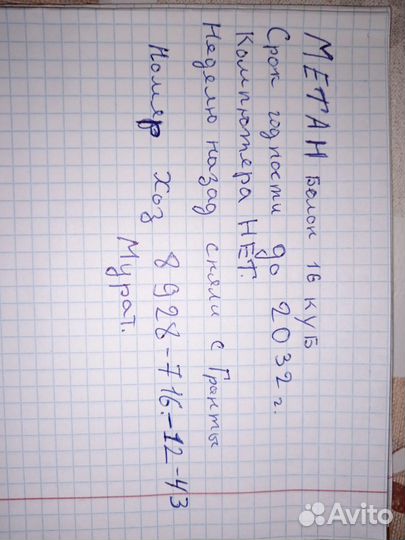 МЕТАН Балон 16 КУБ
Срок годности до 2032 г.
Компютера НЕТ.
Неделю назад сняли с Гранты
Номер хоз 8 928-716-12-43
Мурат.
Avito